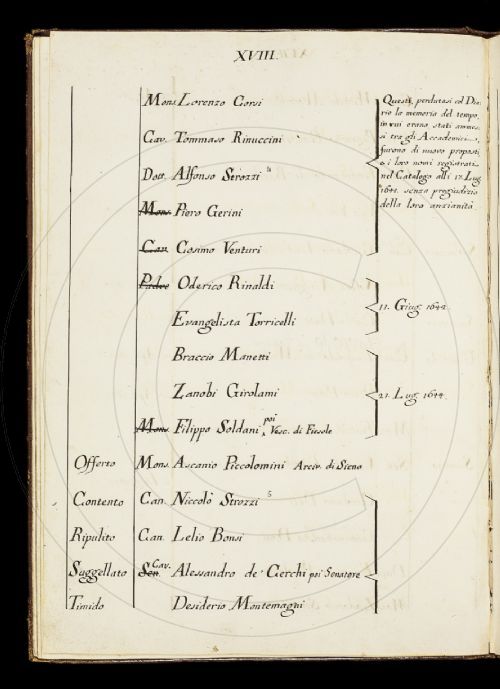 XVIII.
Mons. Lorenzo Corsi
Cav. Tommaso Rinuccini
Dott. Alfonso Strozzi
Mons. Piero Gerini
Can. Cosimo Venturi
Questi, perdutasi col Dia-
rio la memoria del tempo,
in cui erano stati ammes-
si tra gli Accademici,
furono di nuovo proposti,
e i loro nomi registrati
nel Catalogo alli 17. Lug.
1644. senza pregiudizio
della loro anzianità
Padre Oderico Rinaldi
Evangelista Torricelli
11. Giug. 1644.
Braccio Manetti
Zanobi Girolami
Mons. Filippo Soldani poi Vesc. di Fiesole
21. Lug. 1644.
Offerto Mons. Ascanio Piccolomini Arciv. di Siena
Contento Can. Niccolò Strozzi
Ripulito Can. Lelio Bonsi
Suggellato Sen. Cav. Alessandro de' Cerchi poi Senatore
Timido Desiderio Montemagni